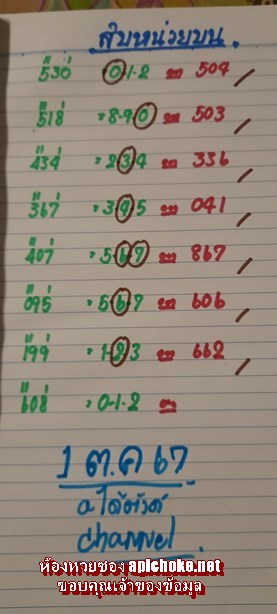 สิบหน่วยบน.
530 0-1-2 504
518 = 8-9-0 503
434 = 234 336
367 = 345 041
407 = 567 867
095 = 567 606
199 = 1-2-3 662
608 = 0-1-2
1 ต.ค 67
channel
ห้องหวยซอง apichoke.net
ขอบคุณเจ้าของข้อมูล